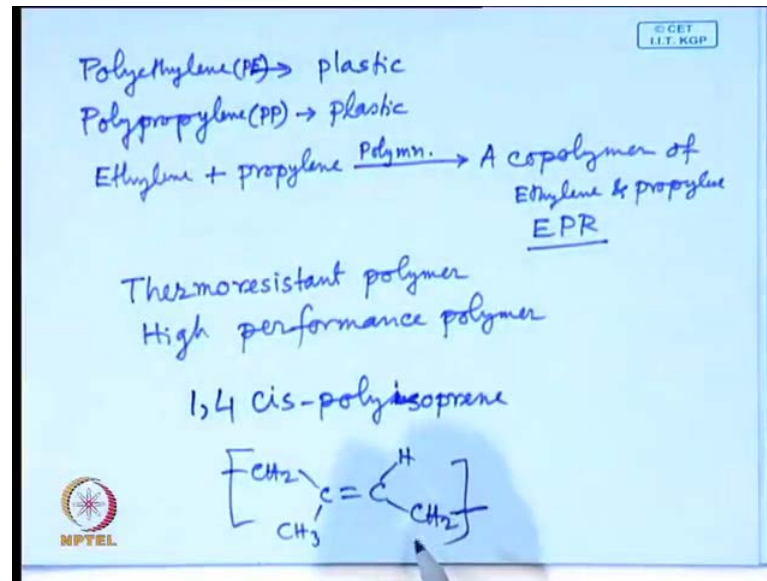 © CET
I.I.T. KGP
Polyethylene (PE) → plastic
Polypropylene (PP) → plastic
Ethylene + propylene Polymn. → A copolymer of
Ethylene & propylene
EPR
Thermoresistant polymer
High performance polymer
1,4 cis-polyisoprene
H
[CH2 C = C CH2]
CH3
NPTEL